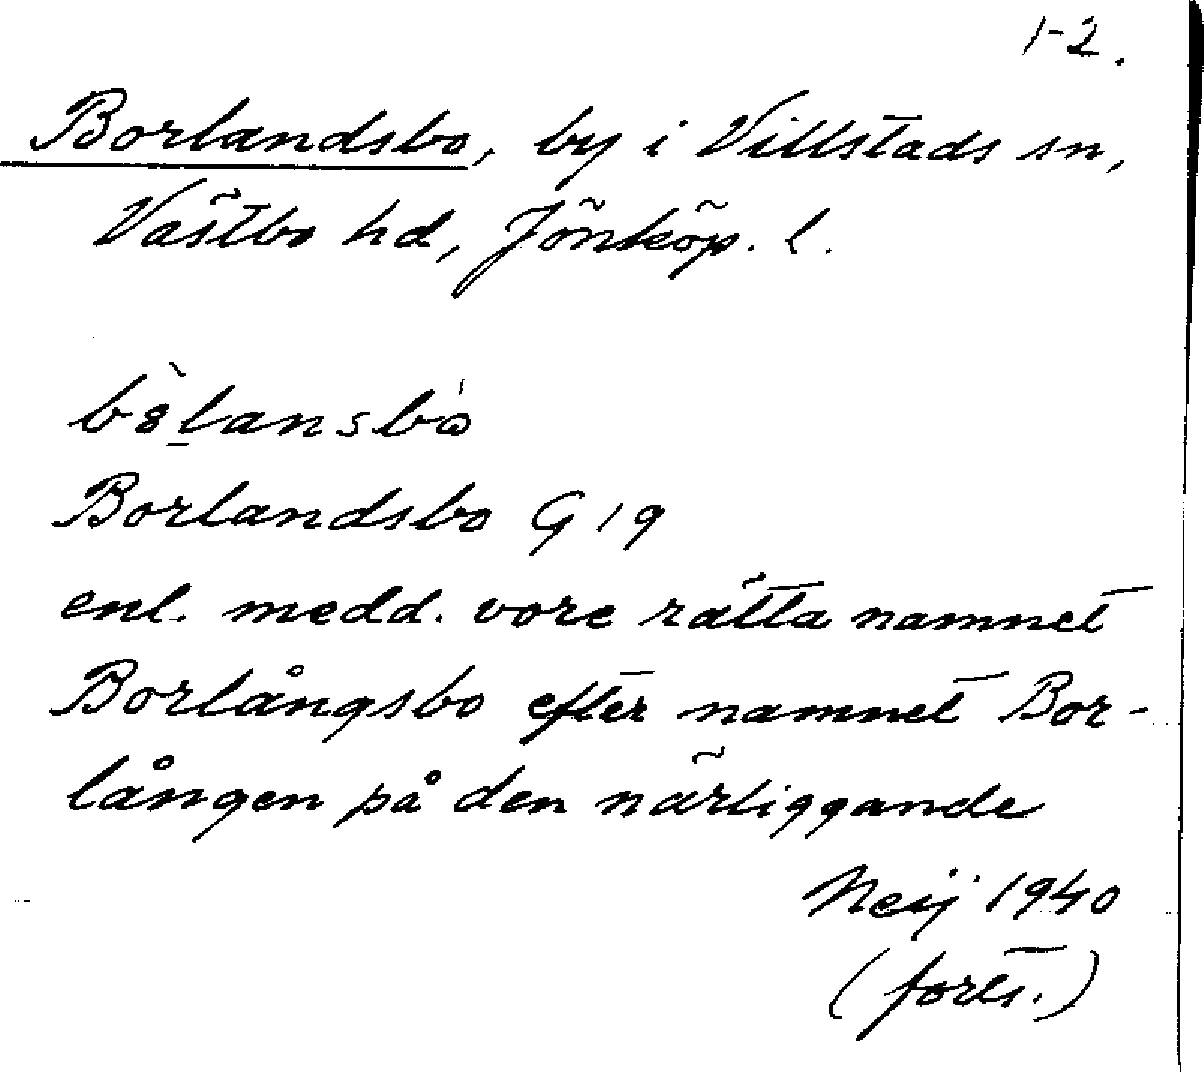 1-2.
Borlandsbo, by i Villstads sn,
Västbo hd, Jönköp. l.
Borlandsbo G 19
enl. medd. vore rätta namnet
Borlångsbo efter namnet Bor-
lången på den närliggande
Neij 1940
(forts.)